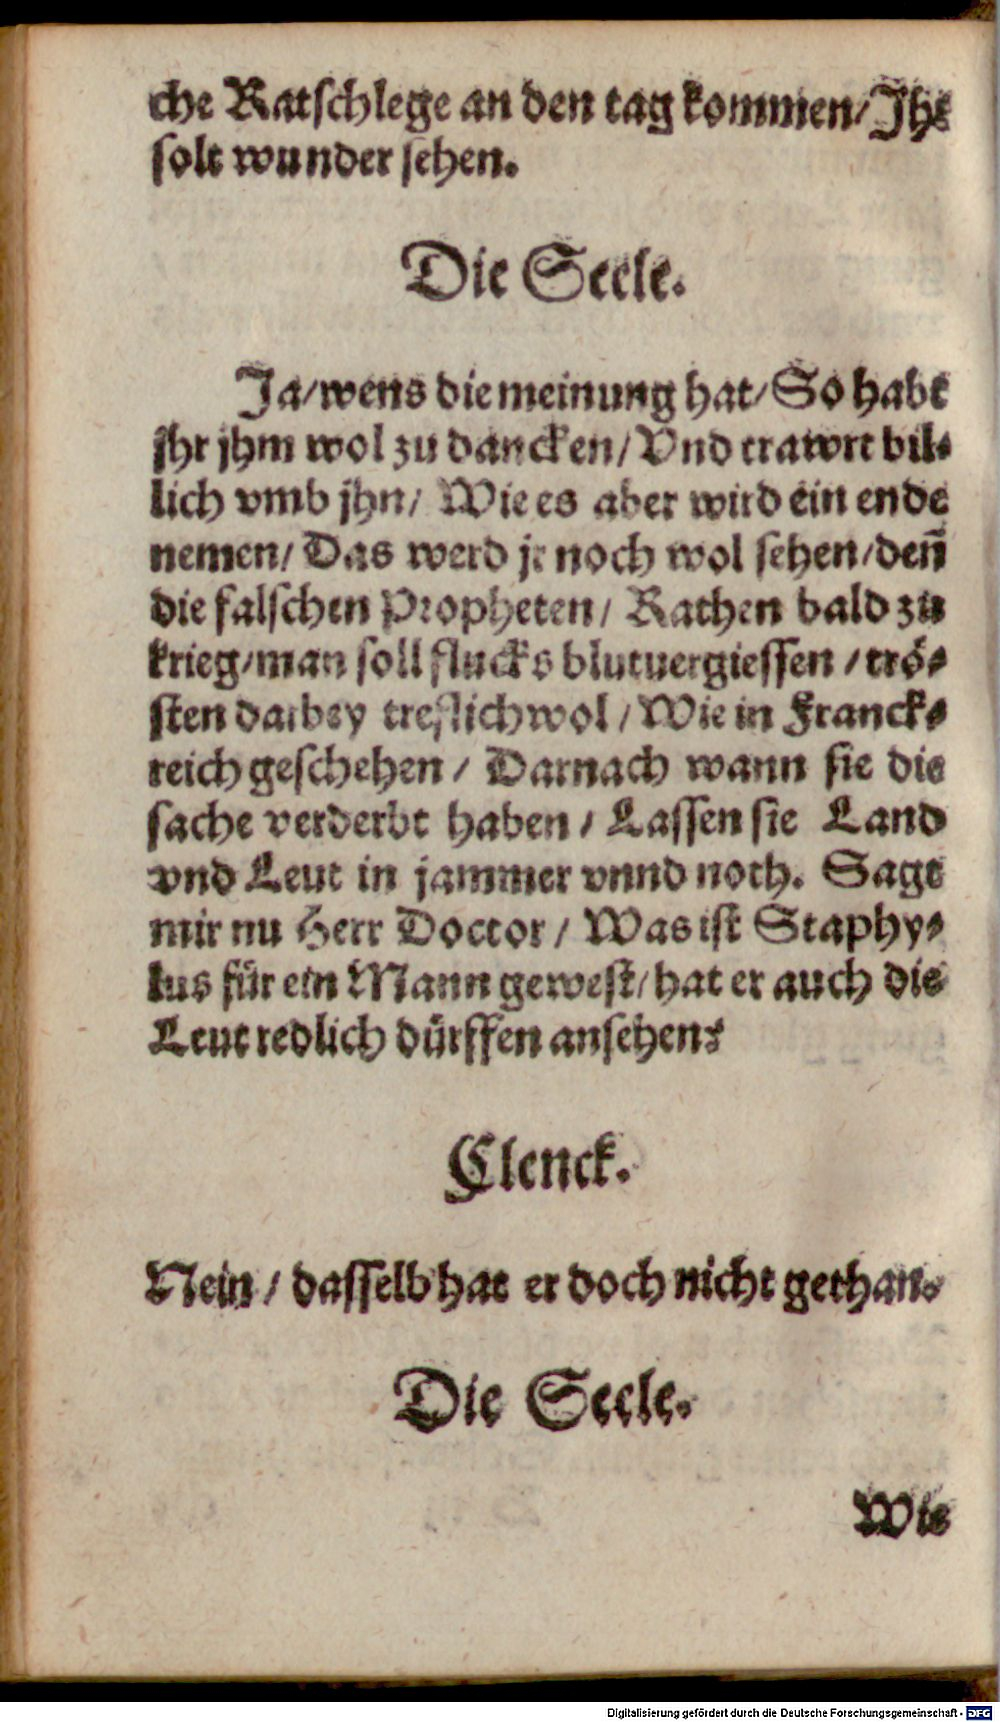 che Ratſchlege an den tag kommen/ Jhr
ſolt wunder ſehen.
Die Seele.
Ja/ wens die meinung hat/ So habt
jhr jhm wol zu dancken/ Vnd trawrt bil⸗
lich vmb jhn/ Wie es aber wird ein ende
nemen/ Das werd jr noch wol ſehen/ den̄
die falſchen Propheten/ Rathen bald zu
krieg/ man ſoll flucks blutuergieſſen / trö⸗
ſten darbey treflich wol / Wie in Franck⸗
reich geſchehen / Darnach wann ſie die
ſache verderbt haben / Laſſen ſie Land
vnd Leut in jammer vnnd noth. Sagt
mir nu Herr Doctor / Was iſt Staphy⸗
lus für ein Mann geweſt/ hat er auch die
Leut redlich dürffen anſehen?
Clenck.
Nein / daſſelb hat er doch nicht gethan.
Die Seele.
Wie
Digitalisierung gefördert durch die Deutsche Forschungsgemeinschaft - DFG